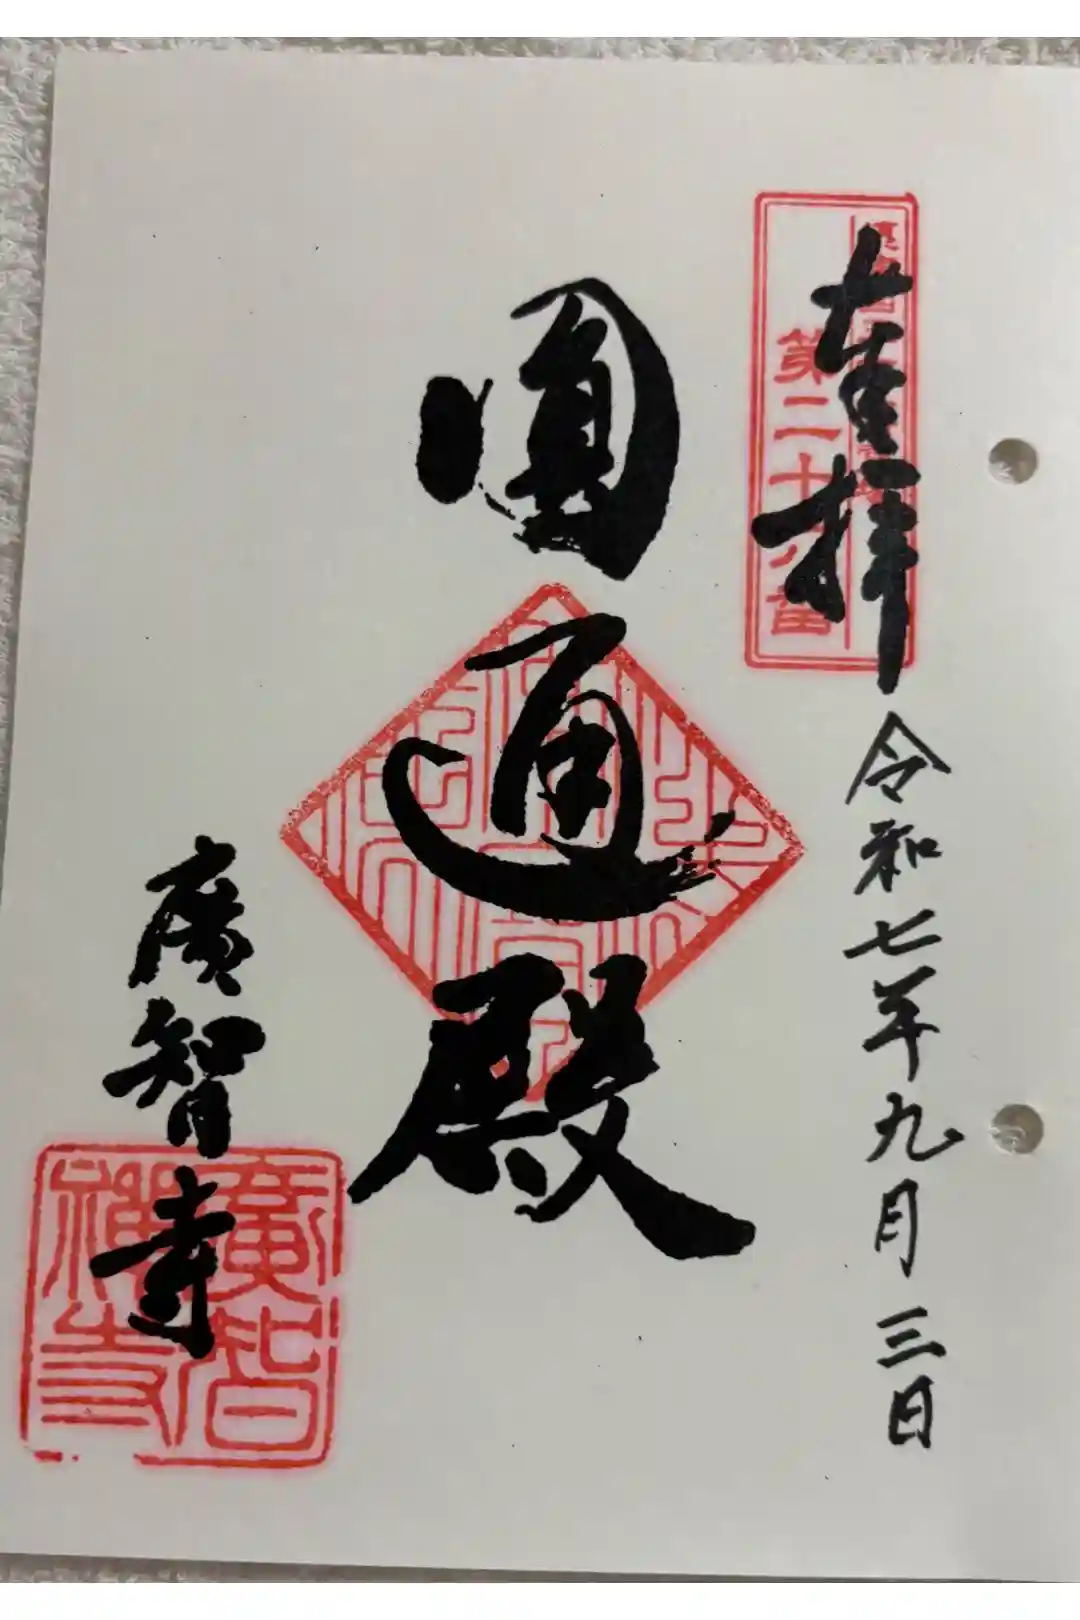 奉拝
令和七年九月三日
第二十八番
圓通殿
廣智寺
廣智
禅寺